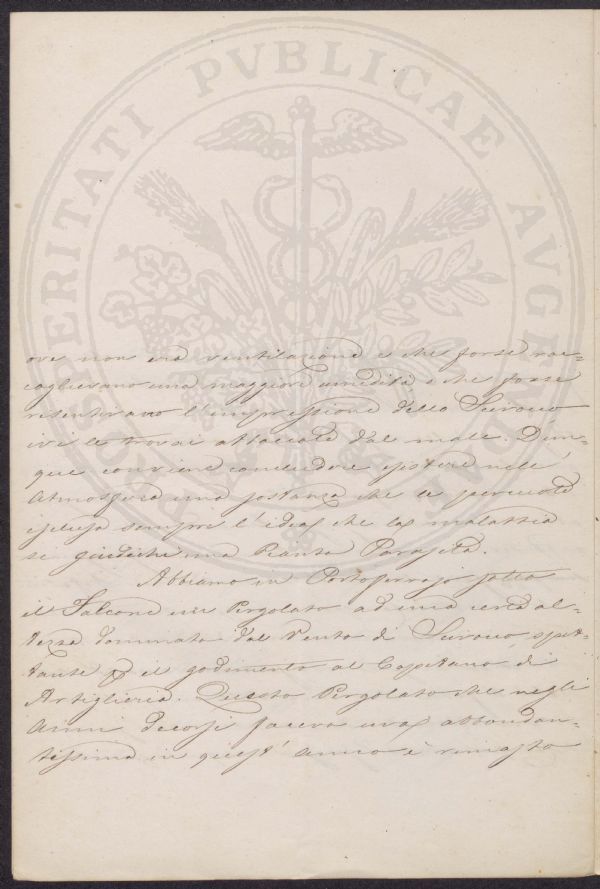 PROSPERITATI PVBLICAE AVGENDAE
ove non era ventilazione e che forse rac=
coglievano una maggiore umidità, e che forse
risentivano l'impressione dello Scirocco
ivi le trovai attaccate dal male. Dun=
que conviene concludere esistere nell'
Atmosfera una sostanza che le percuote
esclusa sempre l'idea che la malattia
se una Pianta Parasita.
Abbiamo in Portoferrajo sotto
il Falcone un Pergolato ad una certa al=
tezza dominato dal Vento di Scirocco, spet=
tante p il godimento al Capitano di
Artiglieria. Questo Pergolato che negli
Anni decorsi faceva uva abbondan=
tissima in quest' anno è rimasto